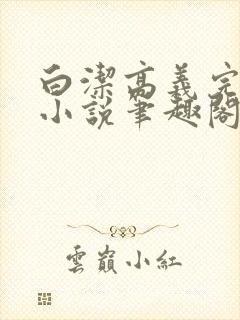 白潔高義完
小說筆趣閣
雲巔小紅